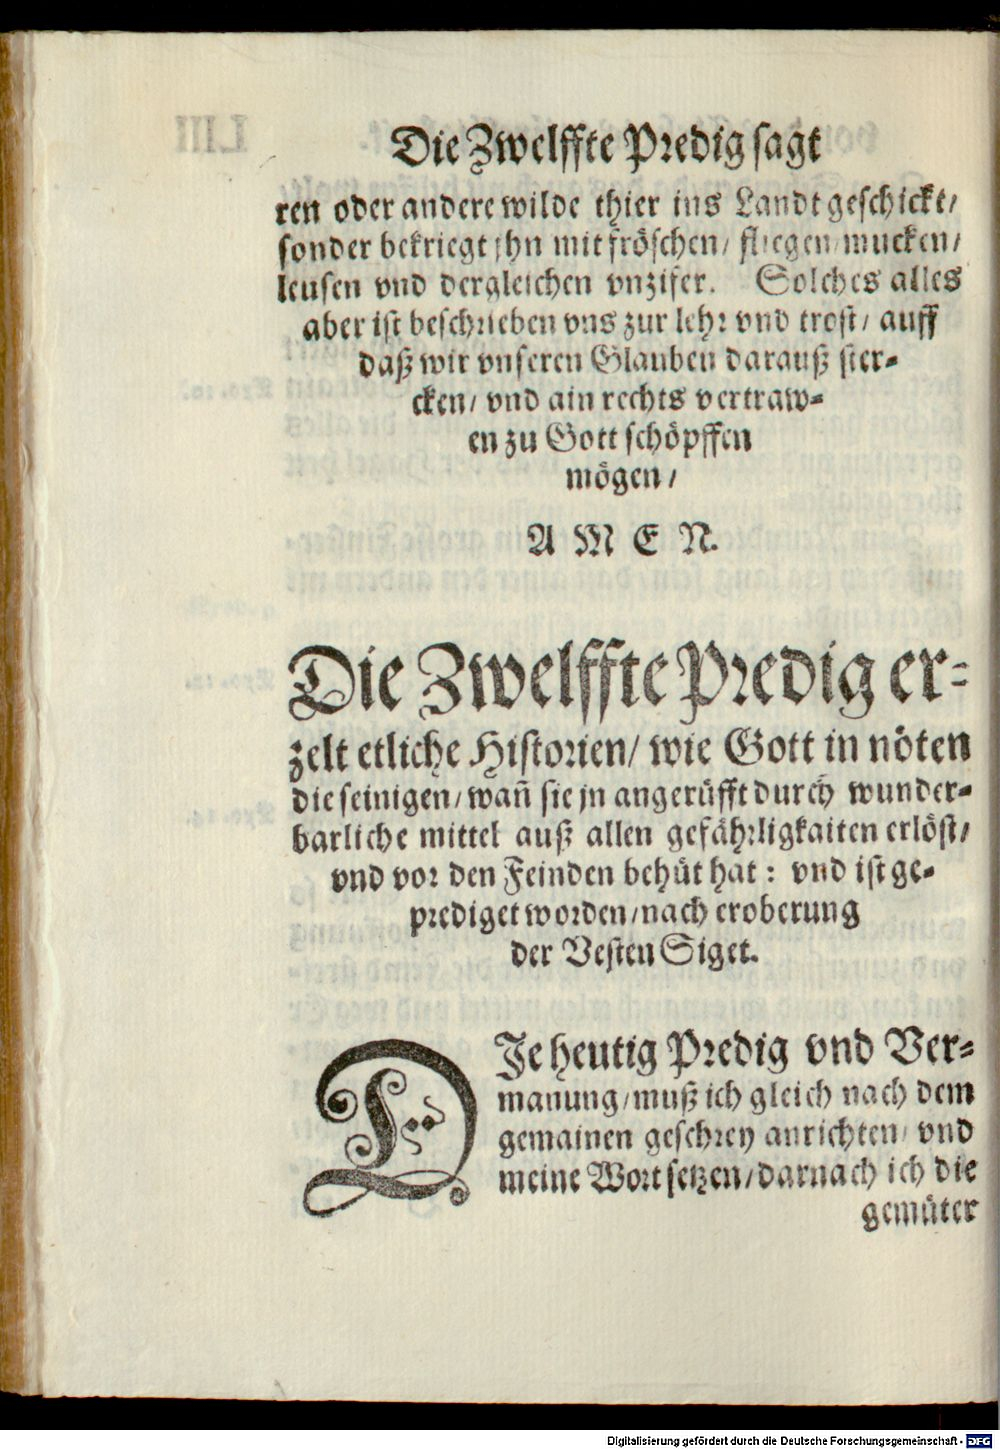 Die Zwelffte Predig sagt
ren oder andere wilde thier ins Landt geschickt/
sonder bekriegt jhn mit fröschen/ fliegen/ mucken/
leusen vnd dergleichen vnzifer. Solches alles
aber ist beschrieben vns zur lehr vnd trost/ auff
daß wir vnseren Glauben darauß ster-
cken/ vnd ain rechts vertraw-
en zu Gott schöpffen
mögen/
A M E N.
Die Zwelffte Predig er-
zelt etliche Historien/ wie Gott in nöten
die seinigen/ wañ sie jn angerüfft durch wunder-
barliche mittel auß allen gefährligkaiten erlöst/
vnd vor den Feinden behüt hat : vnd ist ge-
prediget worden/ nach eroberung
der Vesten Siget.
DJe heutig Predig vnd Ver-
manung/ muß ich gleich nach dem
gemainen geschrey anrichten/ vnd
meine Wort setzen/ darnach ich die
gemüter
Digitalisierung gefördert durch die Deutsche Forschungsgemeinschaft - DFG